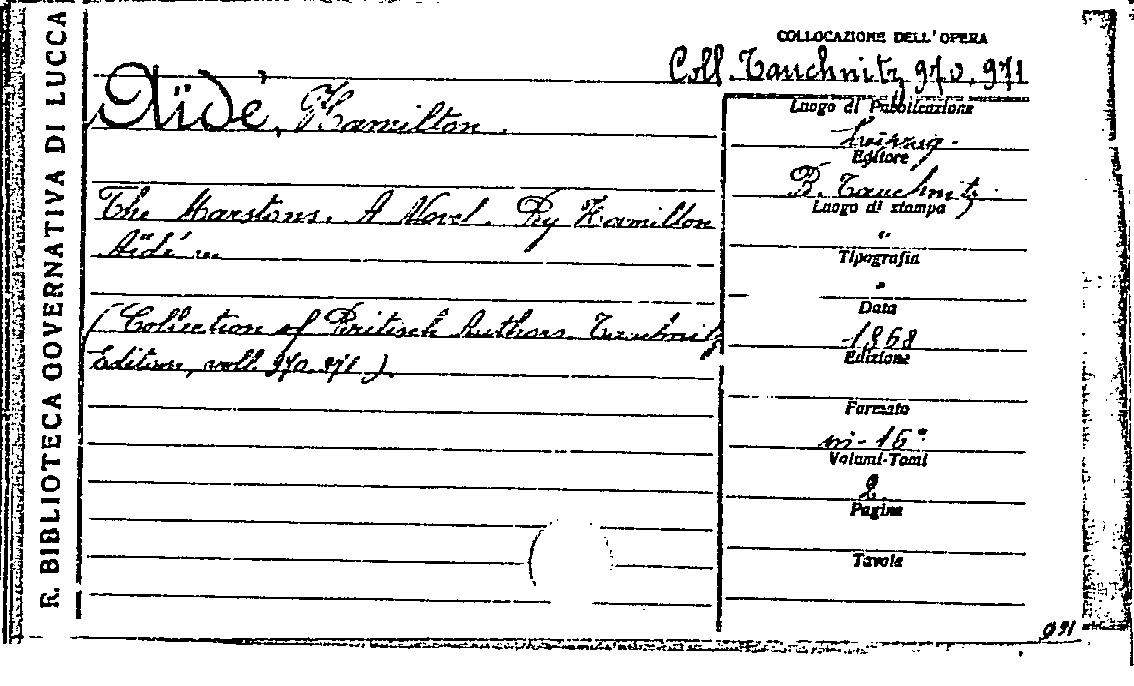 R. BIBLIOTECA GOVERNATIVA DI LUCCA
COLLOCAZIONE DELL'OPERA
Coll. Tauchnitz 970. 971
Aïdé, Hamilton.
The Marstons. A Novel. By Hamilton
Aïdé ...
(Collection of Britisch Authors. Tauchnitz
Edition, voll. 970. 971.).
Luogo di Pubblicazione
Leipzig.
Editore
B. Tauchnitz.
Luogo di stampa
"
Tipografia
"
Data
1868
Edizione
Formato
in-16°
Volumi-Tomi
2.
Pagine
Tavole
091